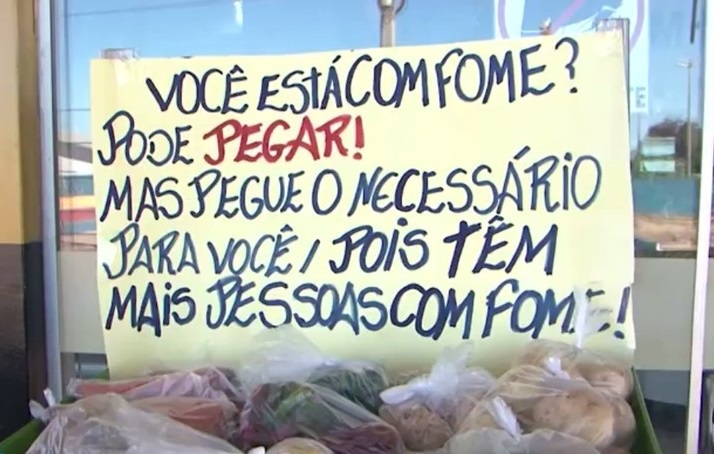 VOCÊ ESTÁ COM FOME?
PODE PEGAR!
MAS PEGUE O NECESSÁRIO
PARA VOCÊ, POIS TÊM
MAIS PESSOAS COM FOME!